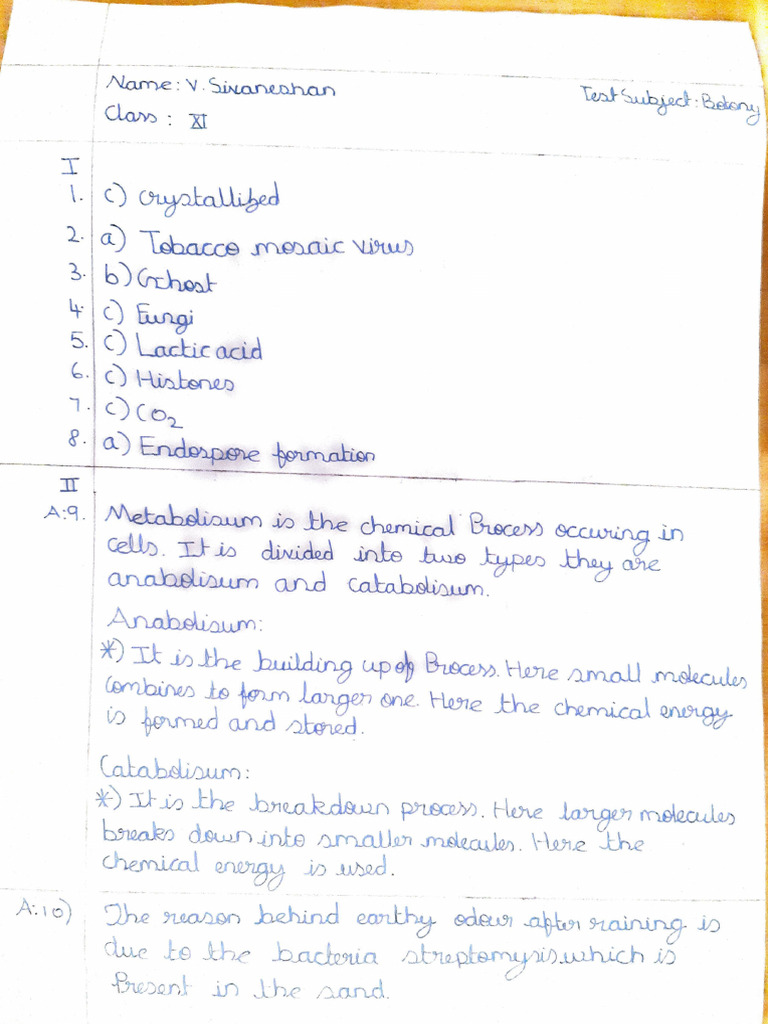 Name: V. Sivaneshan
Test Subject: Botony
Class: XI
I
1. c) crystallized
2. a) Tobacco mosaic virus
3. b) Ghost
4. c) Fungi
5. c) Lactic acid
6. c) Histones
7. c) CO₂
8. a) Endospore formation
II
A:9. Metabolisum is the chemical Process occuring in
cells. It is divided into two types they are
anabolisum and catabolisum.
Anabolisum:
*) It is the building up of Process. Here small molecules
combines to form larger one. Here the chemical energy
is formed and stored.
Catabolisum:
*) It is the breakdown process. Here larger molecules
breaks down into smaller molecules. Here the
chemical energy is used.
A:10) The reason behind earthy odour after raining is
due to the bacteria streptomysis.which is
Present in the sand.